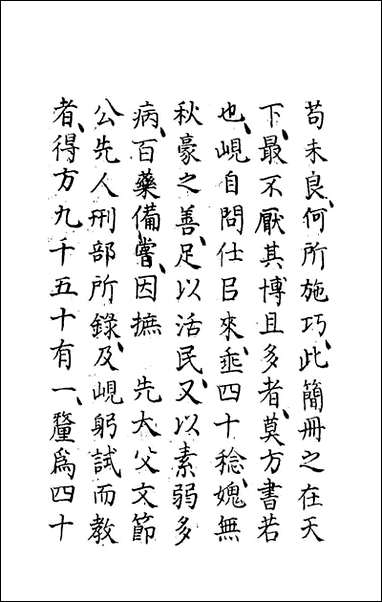 苟未良、何所施巧、此簡冊之在天
下、最不厭其博且多者、莫方書若
也、峴自問仕㠯來、垂四十稔、媿無
秋豪之善、足以活民、又以素弱多
病、百藥備嘗、因摭　先大父文節
公先人刑部所錄、及峴躬試而教
者、得方九千五十有一、釐爲四十